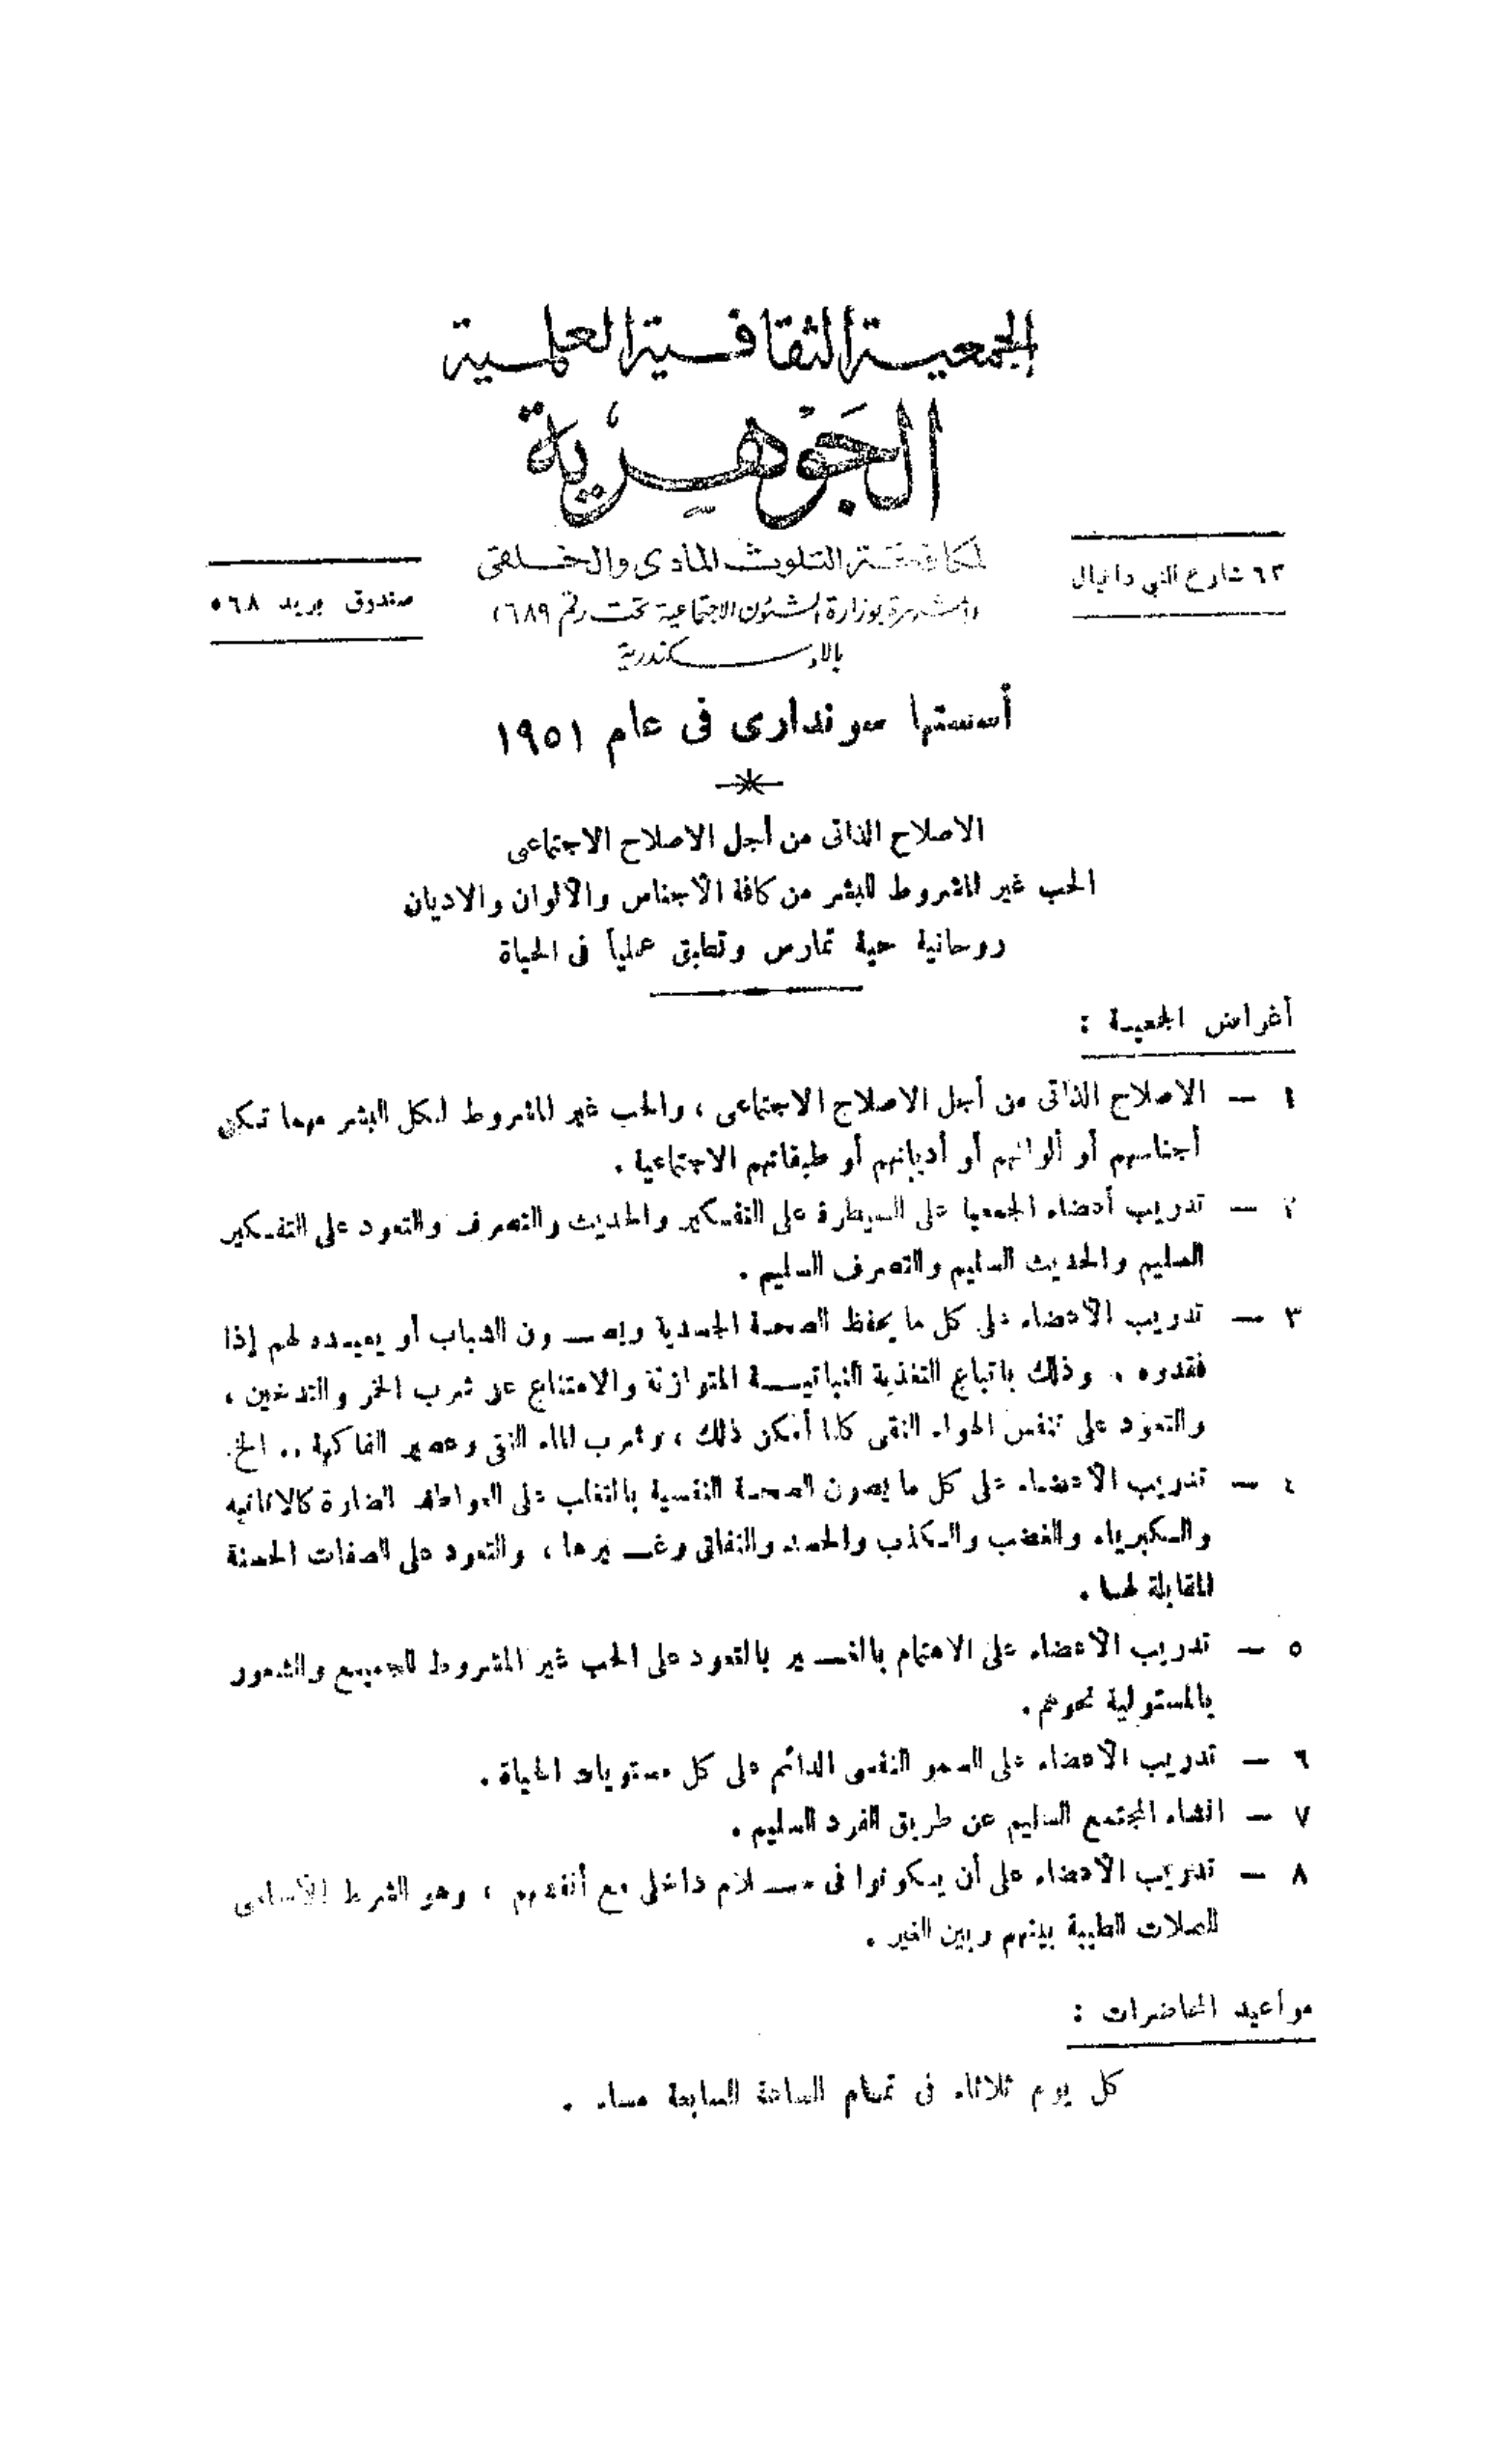 الجمعية الثقافية العلمية
الجَوْهرية
لمكافحة التلوث المادى والخلقى
٦٣ شارع النبي دانيال
صندوق بريد ٥٦٨
(المشهرة بوزارة الشئون الاجتماعية تحت رقم ٦٨٩)
بالاسكندرية
أسستها سوندارى فى عام ١٩٥١
الاصلاح الذاتى من أجل الاصلاح الاجتماعى
الحب غير المشروط للبشر من كافة الأجناس والألوان والاديان
روحانية حية تمارس وتطبق عملياً فى الحياة
أغراض الجمعية :
١ — الاصلاح الذاتى من أجل الاصلاح الاجتماعى ، والحب غير المشروط لكل البشر مهما تكن
أجناسهم أو ألوانهم أو أديانهم أو طبقاتهم الاجتماعية .
٢ — تدريب أعضاء الجمعية على السيطرة على التفكير والحديث والتصرف والتعود على التفكير
السليم والحديث السليم والتصرف السليم .
٣ — تدريب الأعضاء على كل ما يحفظ الصحة الجسدية ويصون الشباب أو يعيده لهم إذا
فقدوه . وذلك باتباع التغذية النباتية المتوازنة والامتناع عن شرب الخمر والتدخين ،
والتعود على تنفس الهواء النقى كلما أمكن ذلك ، وشرب الماء النقى وعصير الفاكهة .. الخ .
٤ — تدريب الأعضاء على كل ما يصون الصحة النفسية بالتغلب على العواطف الضارة كالانانيه
والكبرياء والغضب والكذب والحسد والنفاق وغيرها ، والتعود على الصفات الحسنة
المقابلة لها .
٥ — تدريب الأعضاء على الاهتمام بالغير بالتعود على الحب غير المشروط للجميع والشعور
بالمسئولية نحوهم .
٦ — تدريب الأعضاء على السمو النفسى الدائم على كل مستويات الحياة .
٧ — انشاء المجتمع السليم عن طريق الفرد السليم .
٨ — تدريب الأعضاء على أن يكونوا فى سلام داخلى مع أنفسهم ، وهو الشرط الأساسى
للصلات الطيبة بينهم وبين الغير .
مواعيد المحاضرات :
كل يوم ثلاثاء فى تمام الساعة السابعة مساء .